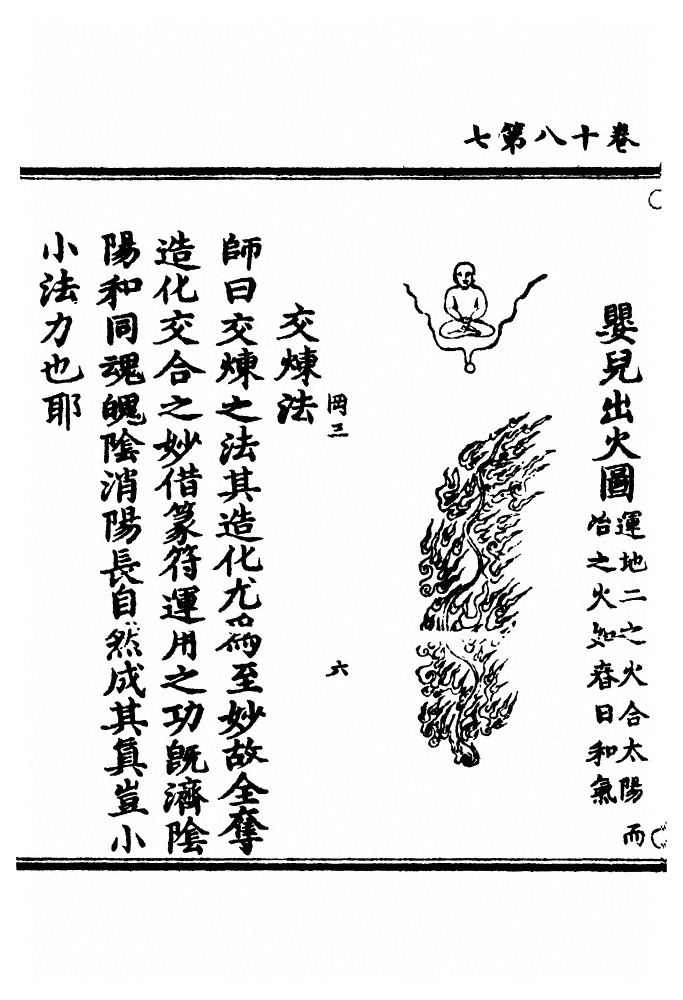 卷十八第七
嬰兒出火圖
運地二之火合太陽而
冶之火如春日和氣
岡三
六
交煉法
師曰交煉之法其造化尤爲至妙故全奪
造化交合之妙借篆符運用之功旣濟陰
陽和同魂魄陰消陽長自然成其真豈小
小法力也耶